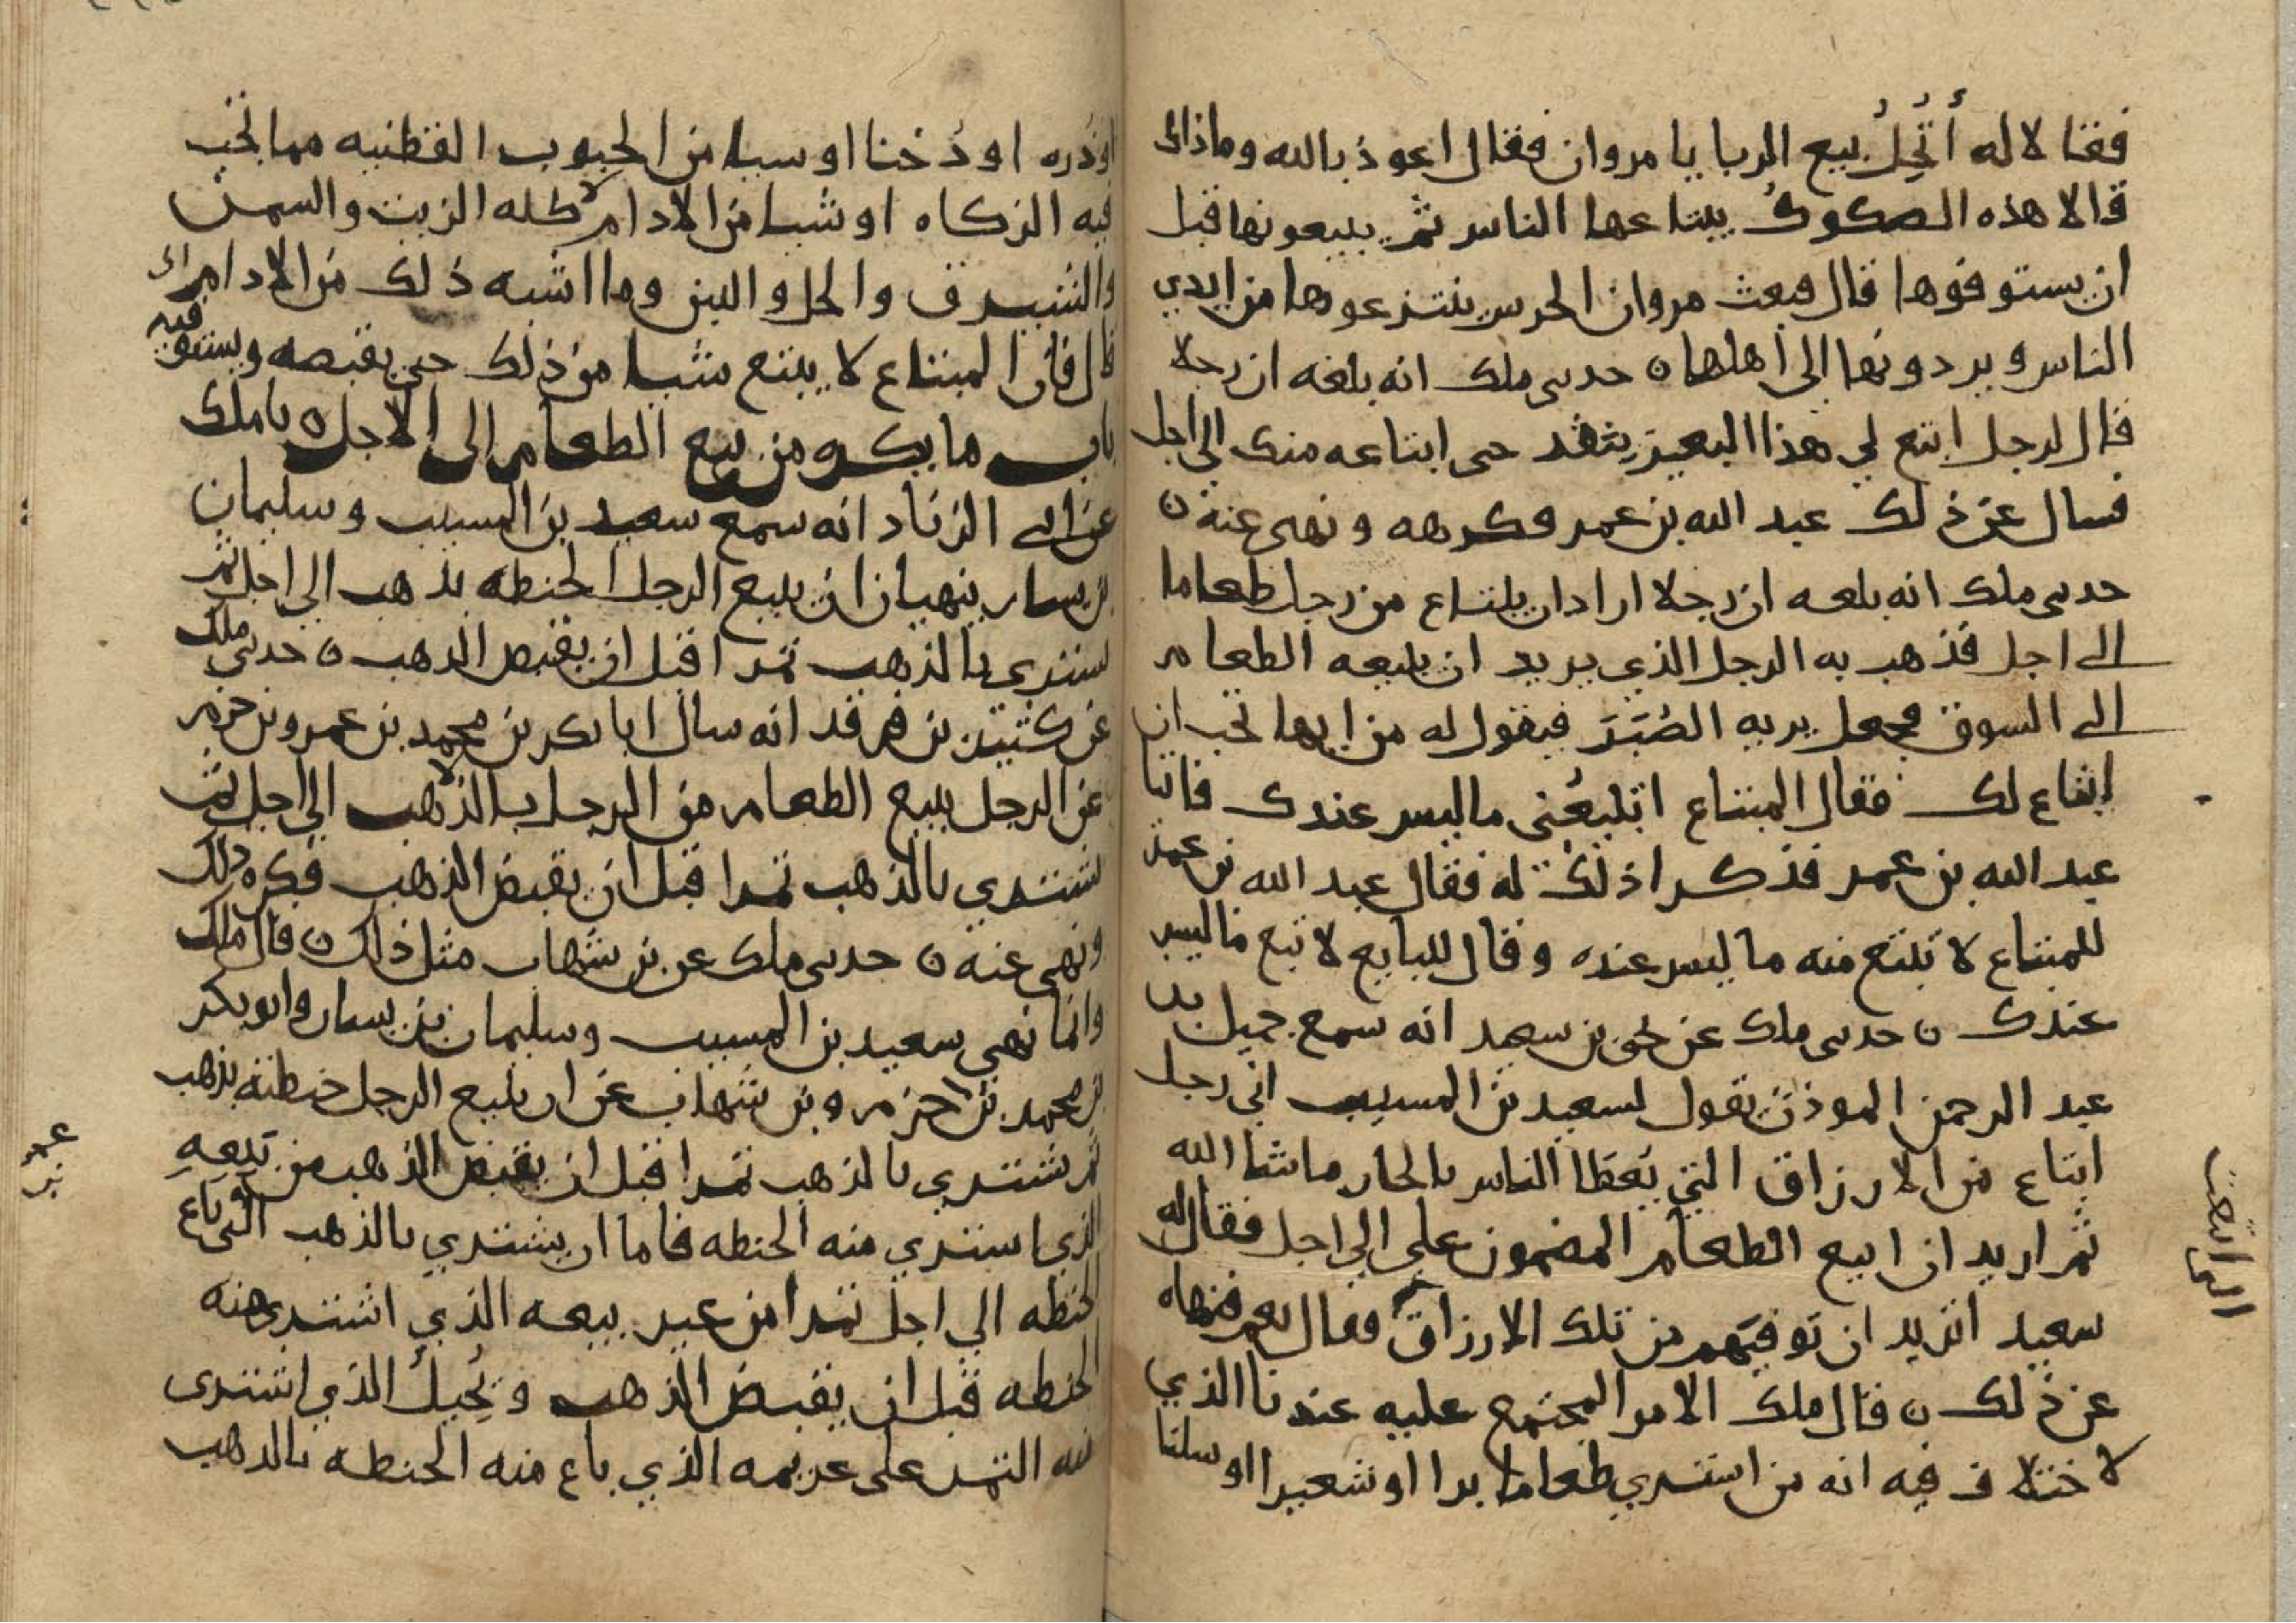 فقالا له أتُحِلُّ بيع الربا يا مروان فقال اعوذ بالله وما ذاك
قالا هذه الصكوك يبتاعها الناس ثم يبيعونها قبل
ان يستوفوها قال فبعث مروان الحرس ينتزعونها من ايدي
الناس ويردونها الى أهلها ن حدىى ملك انه بلغه ان رجلا
قال لرجل ابتع لي هذا البعير بنقد حتى ابتاعه منك الى اجل
فسال عن ذلك عبد الله بن عمر فكرهه ونهى عنه ن
حدىى ملك انه بلغه ان رجلا اراد ان يبتاع من رجل طعاما
الى اجل فذهب به الرجل الذي يريد ان يبيعه الطعام
الى السوق فجعل يريه الصُبَرَ فيقول له من ايها تحب ان
ابتاع لك فقال المبتاع اتبيعُني ما ليس عندك فاتيا
عبد الله بن عمر فذكرا ذلك له فقال عبد الله بن عمر
للمبتاع لا تبتع منه ما ليس عنده وقال للبايع لا تبع ما ليس
عندك ن حدىى ملك عن يحيى بن سعيد انه سمع جميل بن
عبد الرحمن الموذن يقول لسعيد بن المسيب اني رجل
ابتاع من الارزاق التي يُعطا الناس بالجار ما شا الله
ثم اريد ان ابيع الطعام المضمون علي الي اجل فقال له
سعيد اتريد ان توفيهم من تلك الارزاق فقال نعم فنهاه
عن ذلك ن قال ملك الامر المجتمع عليه عندنا الذي
لا ختلاف فيه انه من اشتري طعاما برا او شعيرا او سلتا
التي ابتعت
او ذره او دُخنا او شيا من الحبوب القطنيه مما تجب
فيه الزكاه او شيا من الادام كله الزيت والسمن
والشيرق والخل والجبن وما اشبه ذلك من الادام
قال فان المبتاع لا يبتع شيا من ذلك حتى يقبضه ويستوفيه
باب ما يكره من بيع الطعام إلى الاجل ن ملك
عن ابي الزناد انه سمع سعيد بن المسيب وسليمان
بن يسار ينهيان ان يبيع الرجل الحنطه بذهب الي اجل ثم
يشتري بالذهب تمرا قبل ان يقبض الذهب ن حدىى ملك
عن كثير بن فرقد انه سال ابا بكر بن محمد بن عمرو بن حزم
عن الرجل يبيع الطعام من الرجل بالذهب الي اجل ثم
يشتري بالذهب تمرا قبل ان يقبض الذهب فكره ذلك
ونهى عنه ن حدىى ملك عن بن شهاب مثل ذلك ن قال ملك
وانما نهى سعيد بن المسيب وسليمان بن يسار وابو بكر
بن محمد بن حزم وبن شهاب عن ان يبيع الرجل حنطته بذهب
ثم يشتري بالذهب تمرا قبل ان يقبض الذهب من بَيِّعِهِ
الذي اشتري منه الحنطه فاما ان يشتري بالذهب التي باع
الحنطه الي اجل تمرا من غير بيعه الذي اشترى منه
الحنطه قبل ان يقبض الذهب ويُحيلُ الذي اشترى
منه التمر على غريمه الذي باع منه الحنطه بالذهب
عمرو
بن